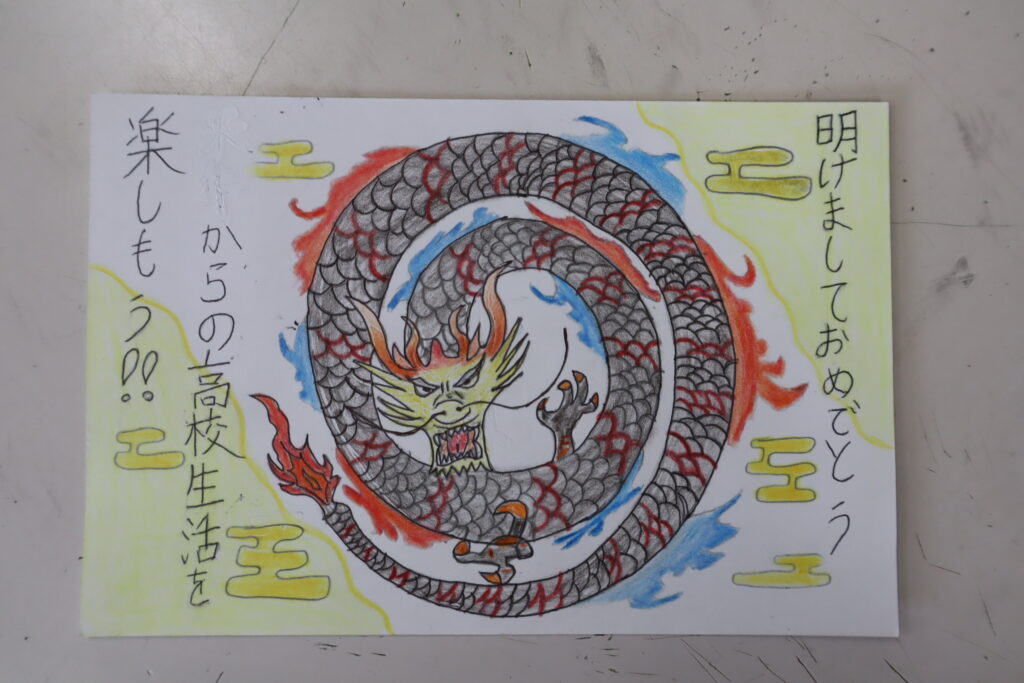 明けましておめでとう
からの高校生活を
楽しもう!!